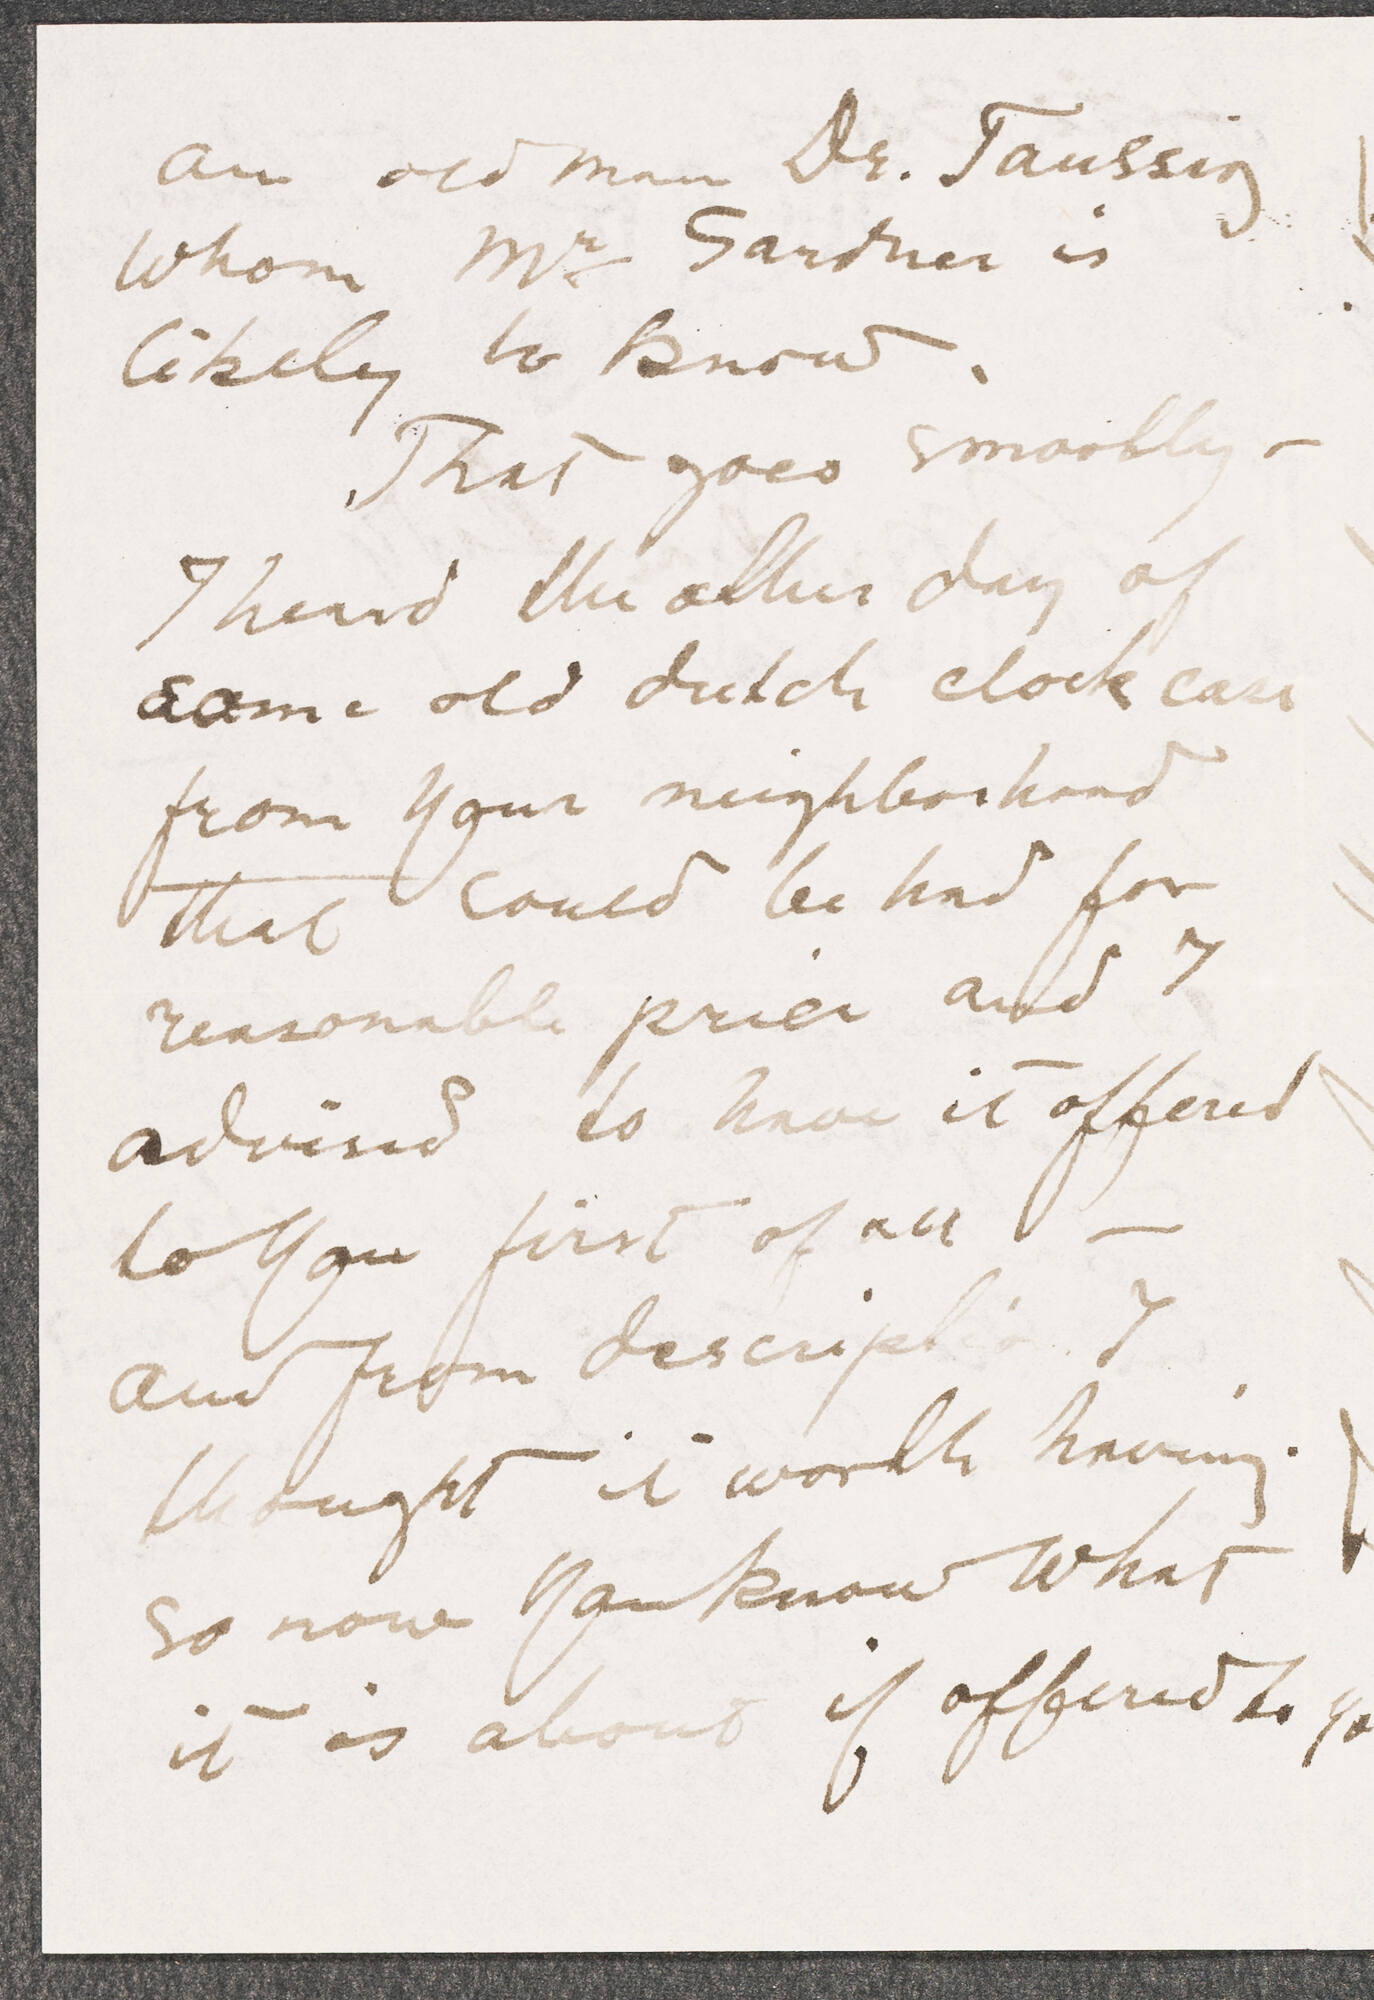 an old man Dr. Taussig
whom Mr Gardner is
likely to know.
That goes smoothly -
I heard the other day of
some old dutch clock case
from your neighborhood
that could be had for
reasonable price and I
advised to have it offered
to you first of all —
and from descriptio I
thought it worth having.
so now you know what
it is about if offered to yo